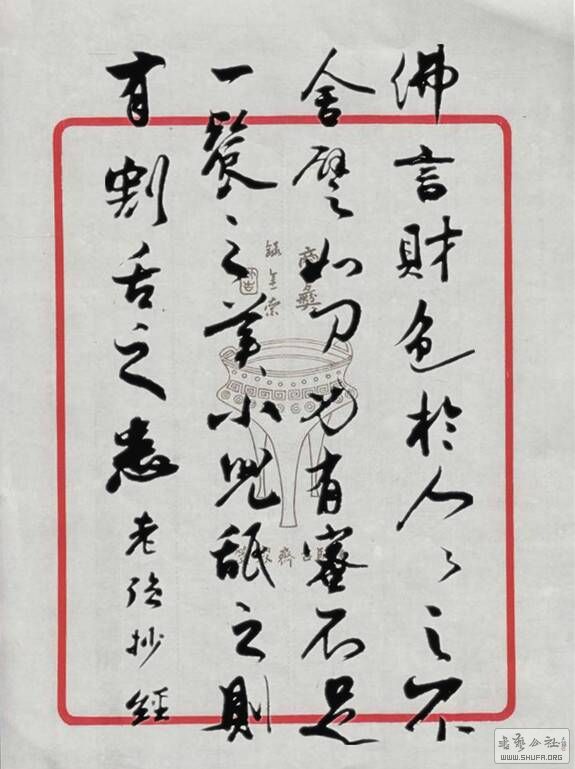 佛言財色於人々之不
舍譬如刀刃有蜜不足
一餐之美小兒舐之則
有割舌之患
老 抄經
商彝
书艺公社
WWW.SHUFA.ORG